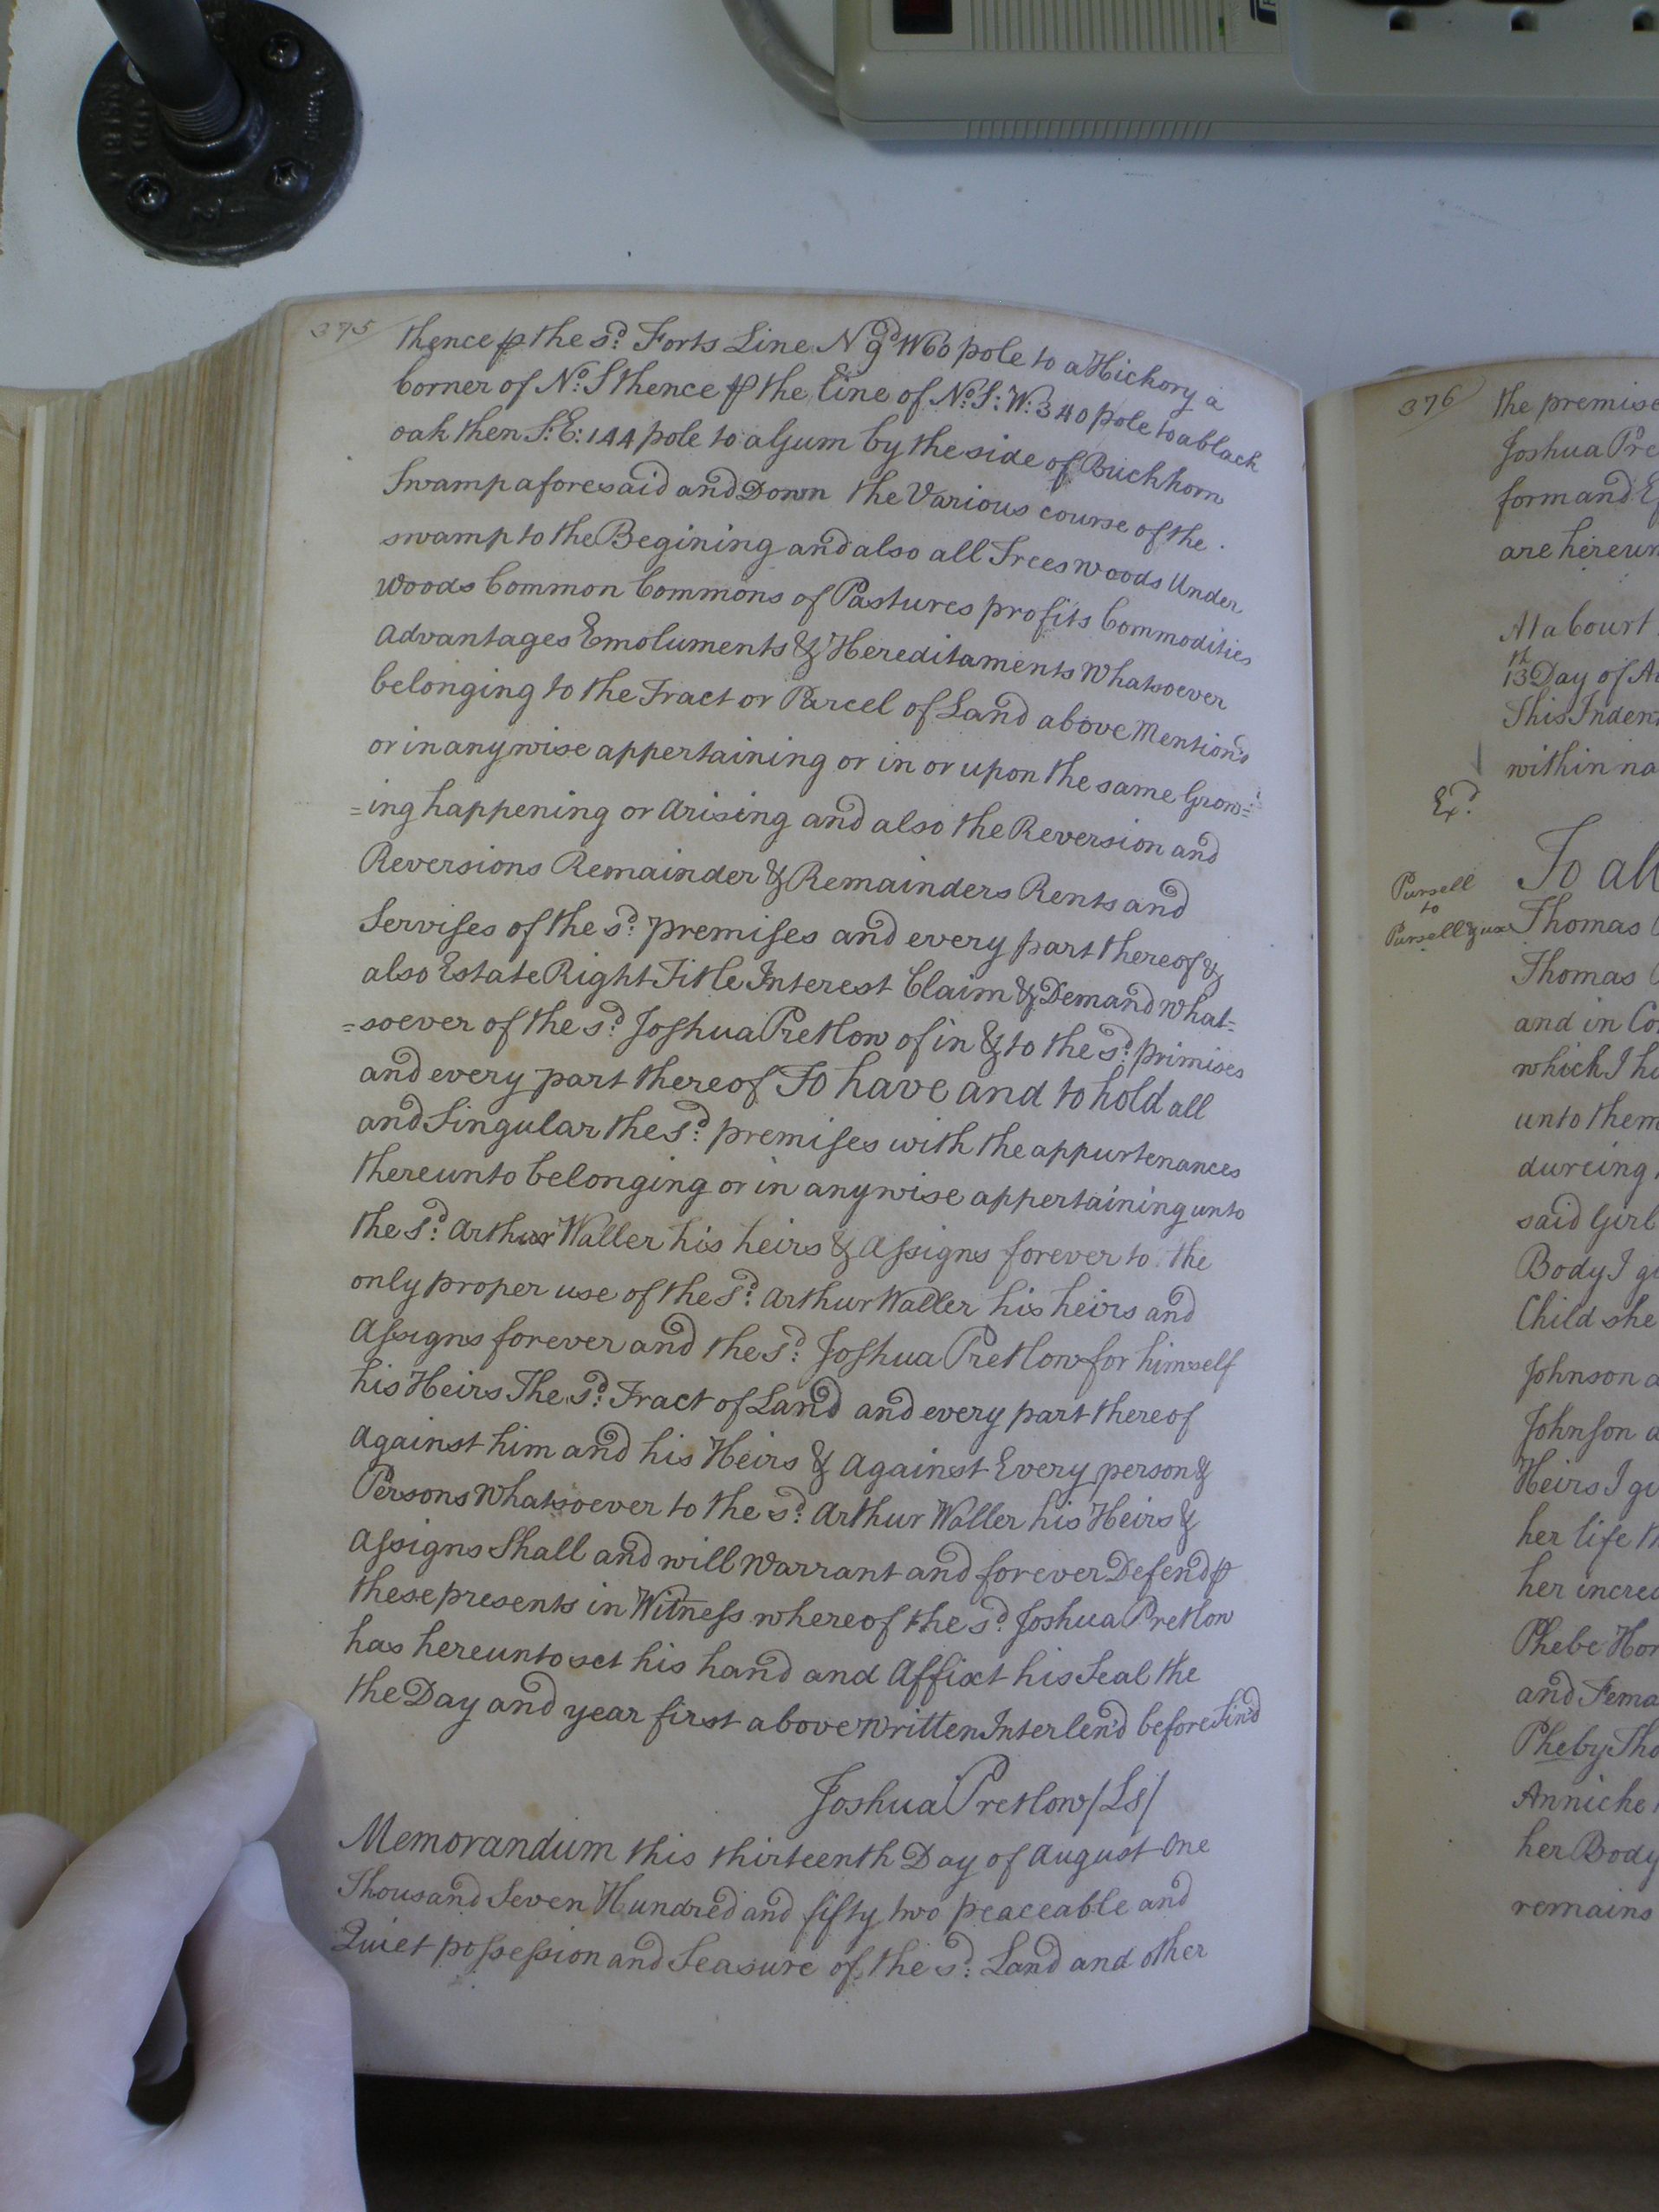 375
thence ꝑ the sd: Forts Line N 9d W60 pole to a Hickory a
Corner of No: S thence ꝑ the line of No: S: W: 340 pole to a black
oak then S: E: 144 pole to a Gum by the side of Buckhorn
Swamp aforesaid and Down the Various course of the
swamp to the Begining and also all Trees woods Under
woods Common Commons of Pastures profits Commodities
Advantages Emoluments & Hereditaments Whatsoever
belonging to the Tract or Parcel of Land above Mention'd
or in any wise appertaining or in or upon the same Grow=
=ing happening or Arising and also the Reversion and
Reversions Remainder & Remainders Rents and
Servises of the sd: premises and every part thereof &
also Estate Right Title Interest Claim & Demand what=
=soever of the sd Joshua Pretlow of in & to the sd: primises
and every part thereof To have and to hold all
and Singular the sd: premises with the appurtenances
thereunto belonging or in any wise appertaining unto
the sd: Arthur Waller his heirs & Assigns forever to the
only proper use of the sd: Arthur Waller his heirs and
Assigns forever and the sd: Joshua Pretlow for himself
his Heirs The sd: Tract of Land and every part thereof
Against him and his Heirs & Against Every person &
Persons Whatsoever to the sd: Arthur Waller his Heirs &
Assigns Shall and will Warrant and forever Defend ꝑ
these presents in Witness whereof the sd Joshua Pretlow
has hereunto set his hand and Affixt his Seal the
the Day and year first above Written Interlen'd before Sin'd
Joshua Pretlow /Ls/
Memorandum this thirteenth Day of August One
Thousand Seven Hundred and fifty two peaceable and
Quiet possession and Seasure of the sd: Land and other
376
the premise
Joshua Pre
form and E
are hereun
At a Court
13th Day of Au
This Inden
within na
Exd:
Pursell
to
Pursell & ux
To all
Thomas
Thomas
and in Co
which I ha
unto them
dureing
said Girl
Body I gi
Child she
Johnson a
Johnson a
Heirs I gi
her life th
her increa
Phebe Hon
and Fema
Pheby Tho
Anniche
her Body
remains